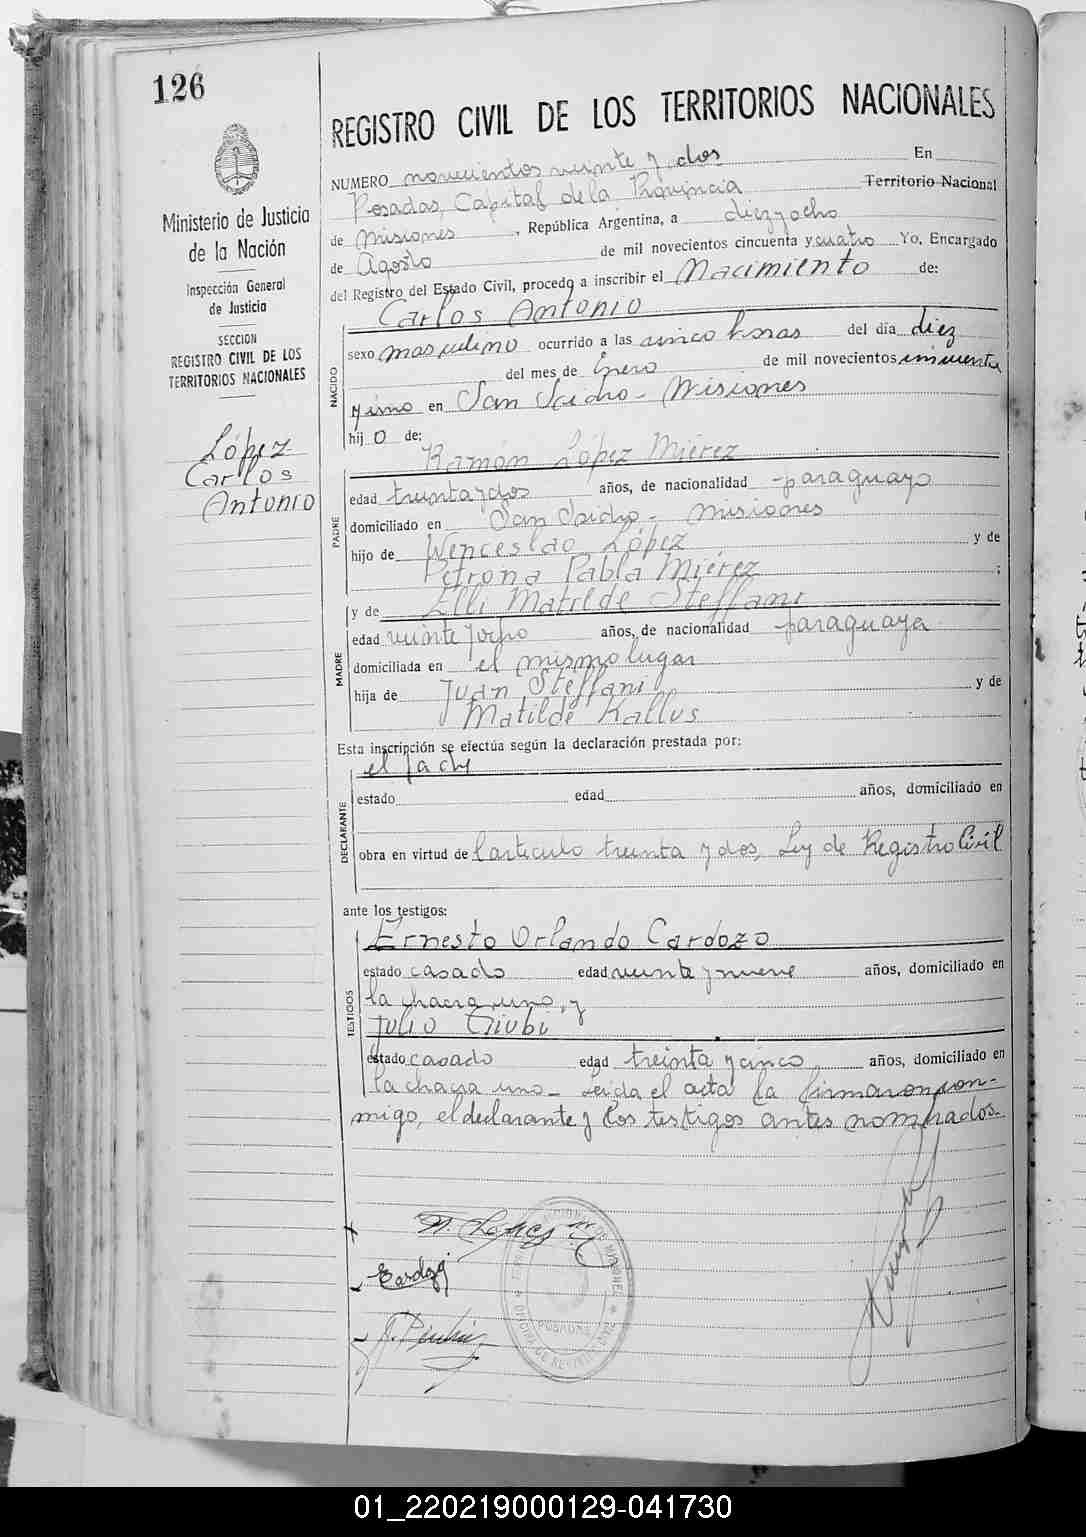 126
Ministerio de Justicia
de la Nación
Inspección General
de Justicia
SECCION
REGISTRO CIVIL DE LOS
TERRITORIOS NACIONALES
López
Carlos
Antonio
REGISTRO CIVIL DE LOS TERRITORIOS NACIONALES
NUMERO novecientos veinte y dos En
Posadas, Capital de la Provincia Territorio Nacional
de Misiones, República Argentina, a diez y ocho
de Agosto de mil novecientos cincuenta y cuatro Yo, Encargado
del Registro del Estado Civil, procedo a inscribir el Nacimiento de:
Carlos Antonio
NACIDO
sexo masculino ocurrido a las cinco horas del día diez
del mes de Enero de mil novecientos cincuenta
y uno en San Isidro - Misiones
hijo de:
Ramón López Miérez
PADRE
edad treinta y dos años, de nacionalidad - paraguayo
domiciliado en San Isidro - Misiones
hijo de Wenceslao López y de
Petrona Pabla Miérez ;
y de Elli Matilde Steffani
MADRE
edad veinte y ocho años, de nacionalidad - paraguaya
domiciliada en el mismo lugar
hija de Juan Steffani y de
Matilde Kallus
Esta inscripción se efectúa según la declaración prestada por:
el padre
DECLARANTE
estado edad años, domiciliado en
obra en virtud de l'artículo treinta y dos, Ley de Registro Civil
ante los testigos:
Ernesto Orlando Cardozo
TESTIGOS
estado casado edad veinte y nueve años, domiciliado en
la chacra uno, y
Julio Giubi
estado casado edad treinta y cinco años, domiciliado en
la chacra uno - Leida el acta la firmaron con-
migo, el declarante y los testigos antes nombrados.-
R. López M
Cardozo
POSADAS
01_220219000129-041730